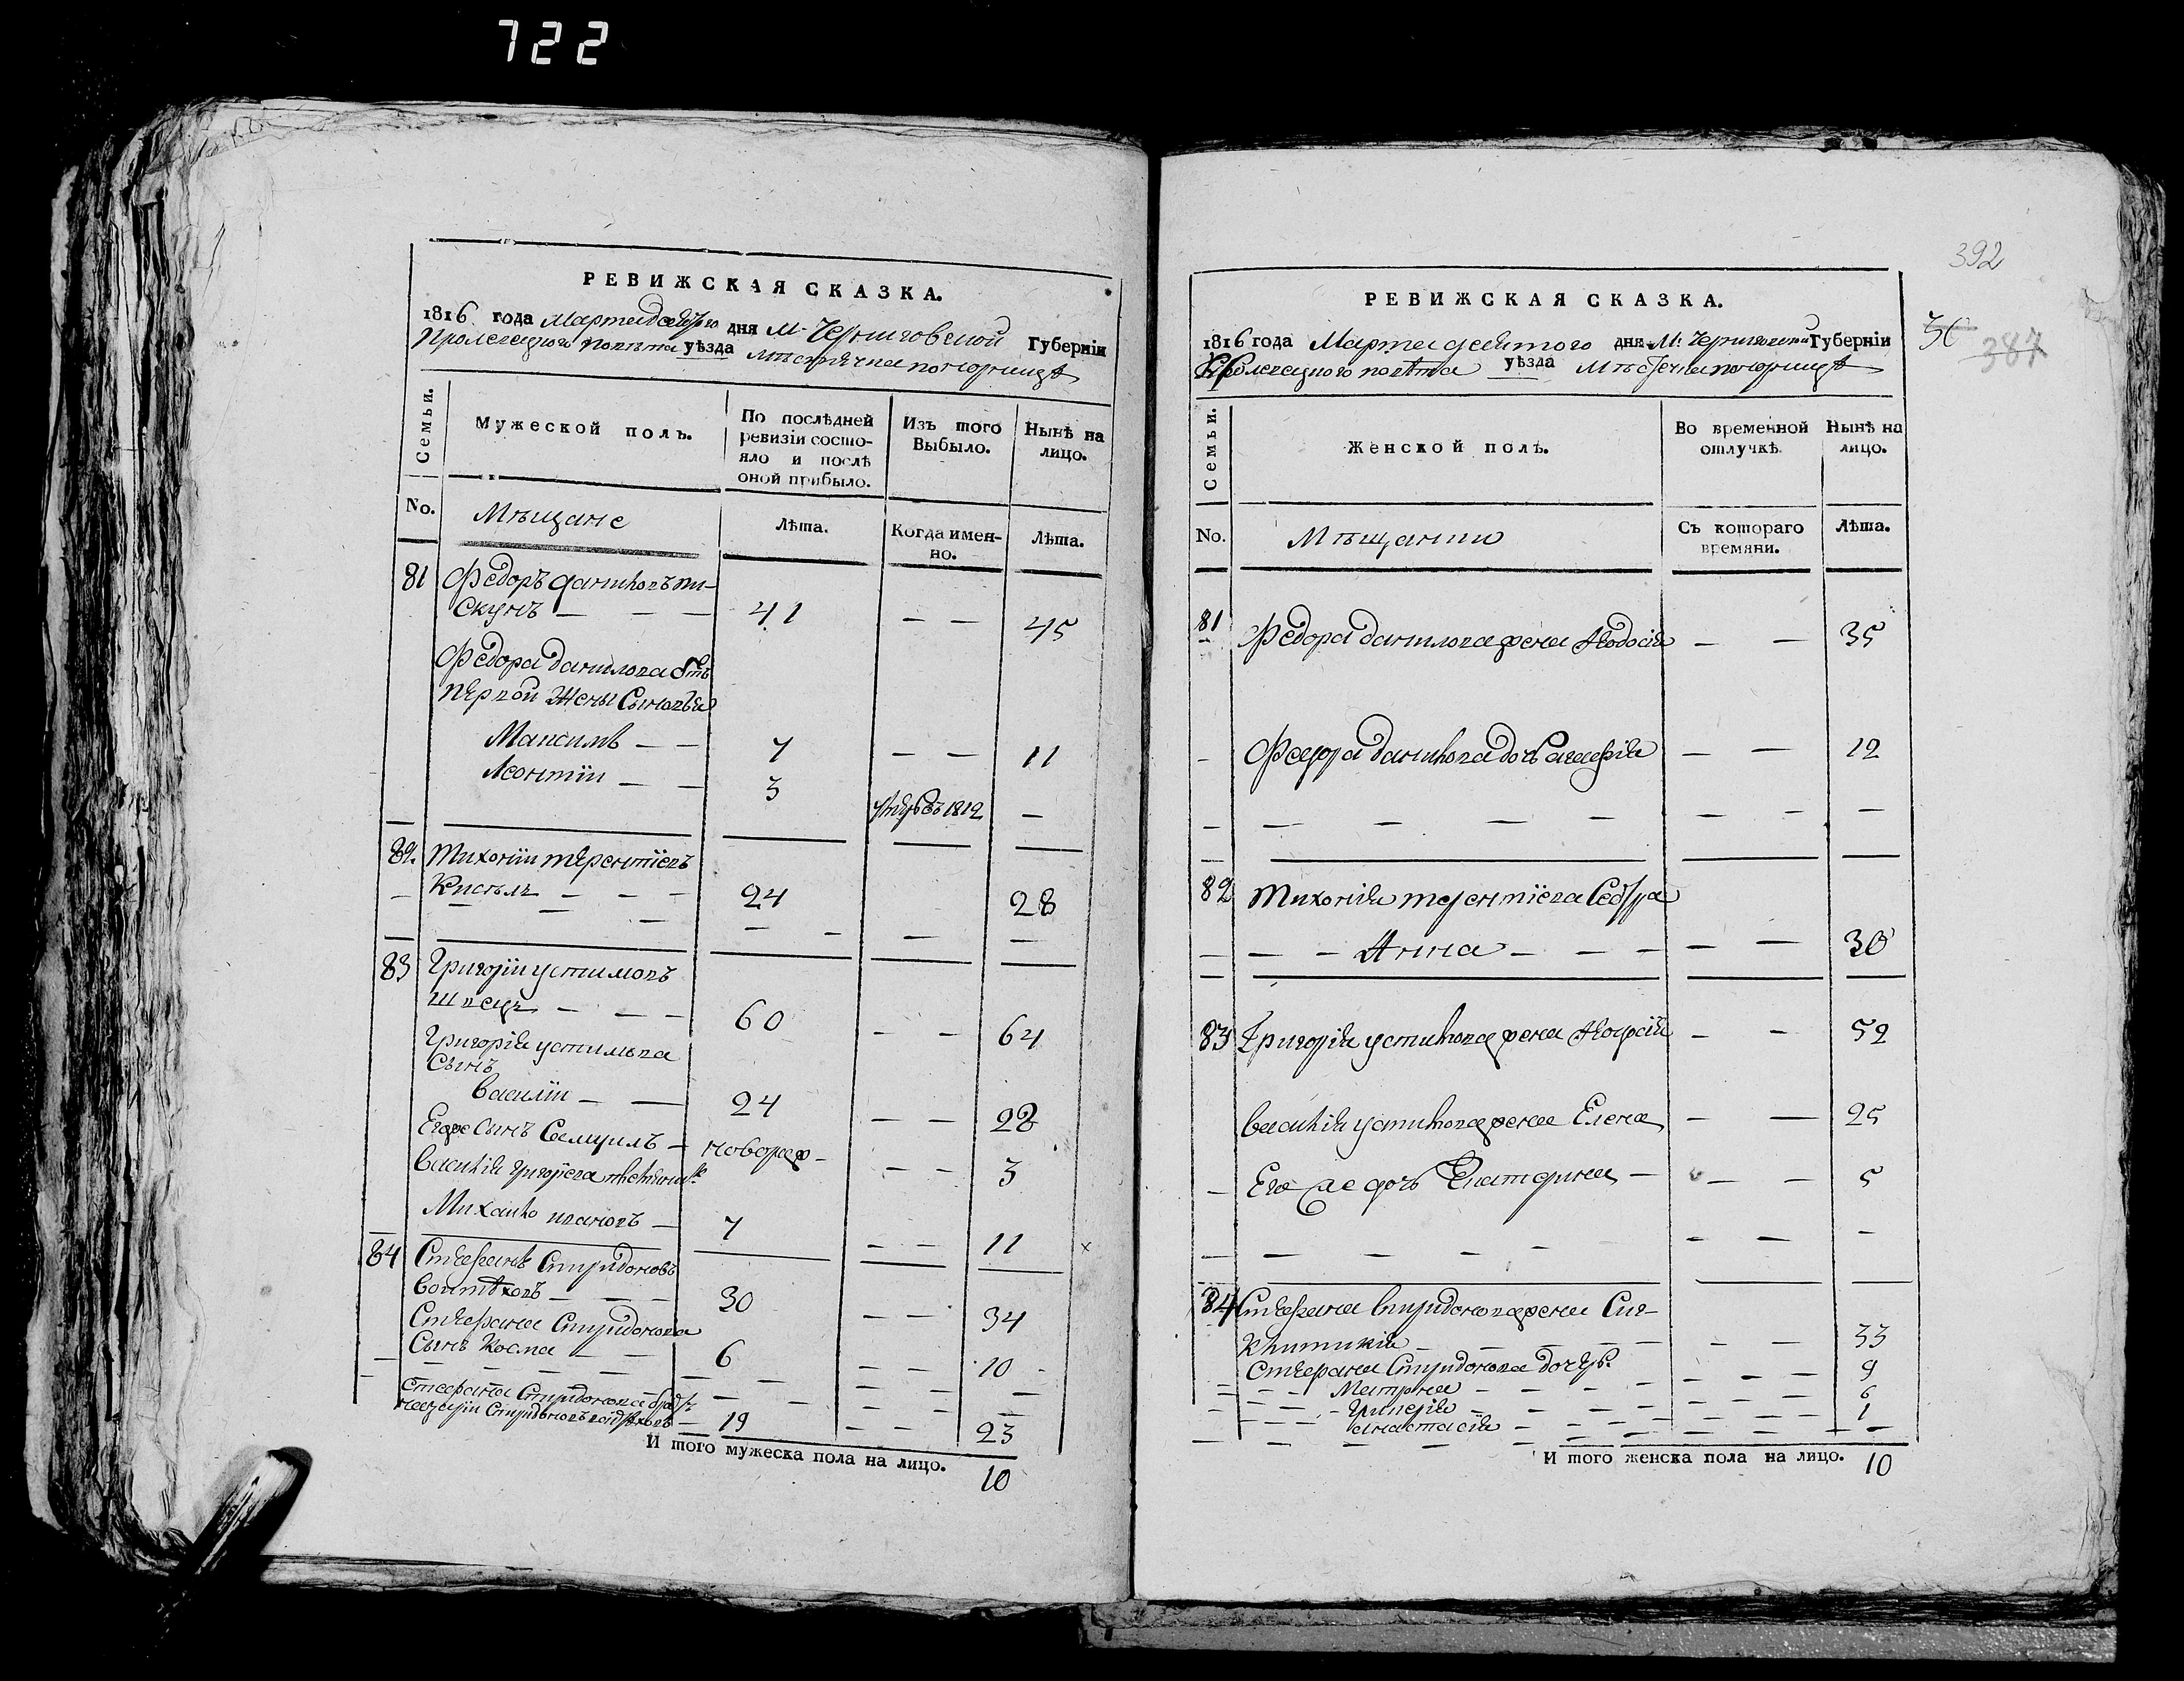 722
РЕВИЖСКАЯ СКАЗКА.
1816 года Марта десятого дня М. Черниговской Губернiи
Кролевецкого повѣта уѣзда мѣстечка понорницѣ
Семьи.
Мужеской полъ.
По послѣдней ревизiи состо-
яло и послѣ оной прибыло.
Изъ того Выбыло.
Нынѣ на лицо.
No.
Мѣщане
Лѣта.
Когда имен-
но.
Лѣта.
81 Федоръ даниловъ пи-
скунъ — — — 41 — — 45
Федора данилова отъ
первой жены Сыновья
Максимъ — — 7 — — 11
Леонтiи — — 3 умеръ въ 1812 —
82. Тихонiи терентiевъ
— Кисѣль — — — 24 28
83 Григорiи устимовъ
швецъ — — — 60 — — 64
Григорiя устимова
Сынъ
василiи — — 24 — — 28
Его же Сынъ Самуилъ — новорож — — — 3
василiя григорiева племянникъ
Михаило ивановъ — 7 — — 11 x
84 Стефанъ Спиридоновъ
— — — 30 — — 34
Стефана Спиридонова
Сынъ Косма — — 6 — — 10
Стефана Спиридонова братъ
Спиридоновъ — 19 — — 23
И того мужеска пола на лицо. 10
392
387
РЕВИЖСКАЯ СКАЗКА.
1816 года Марта десятого дня М. Черниговской Губернiи
Кролевецкого повѣта уѣзда Мѣстечка понорницѣ
Семьи.
Женской полъ.
Во временной отлучкѣ.
Нынѣ на лицо.
No.
Мѣщанки
Съ котораго времяни.
Лѣта.
81 Федора данилова жена Феодосiя — — 35
— Федора данилова дочь агафiя — — 12
82 Тихонiя терентiева Сестра
— — — Анна — — — — — 30
83 Григорiя устимова жена — — 52
василiя устимова жена Елена — — 25
— Его же дочь Екатерина — — — 5
84 Стефана Спиридонова жена Син-
клитикiя — — — — — — 33
Стефана Спиридонова дочери — — — 9
— — — Матрона — — — — — — — 6
— — — — — — — — — — 1
— — — анастасiя — — — — — — —
И того женска пола на лицо. 10